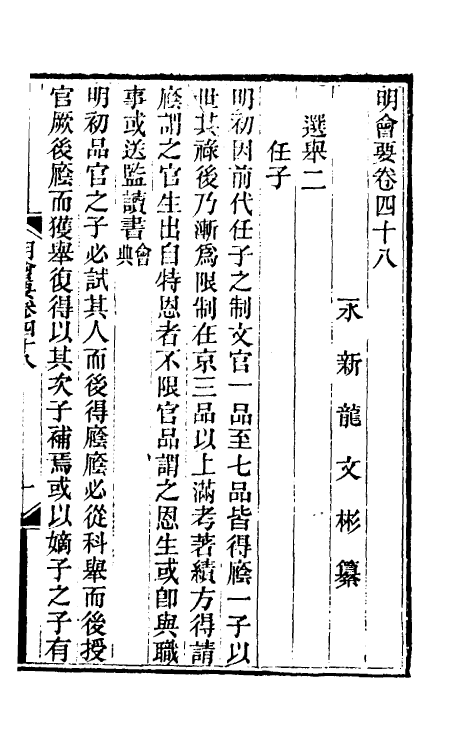 明會要卷四十八
永新龍文彬纂
選舉二
任子
明初因前代任子之制文官一品至七品皆得廕一子以
世其祿後乃漸爲限制在京三品以上滿考著績方得請
廕謂之官生出自特恩者不限官品謂之恩生或卽與職
事或送監讀書會典
明初品官之子必試其人而後得廕廕必從科舉而後授
官厥後廕而獲舉復得以其次子補焉或以嫡子之子有
明會要卷四十八
一